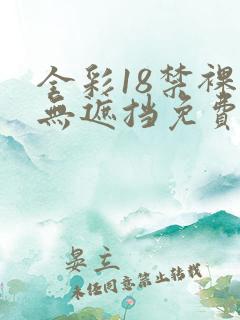 全彩18禁裸
無遮挡免費
晏立
未经同意禁止转载